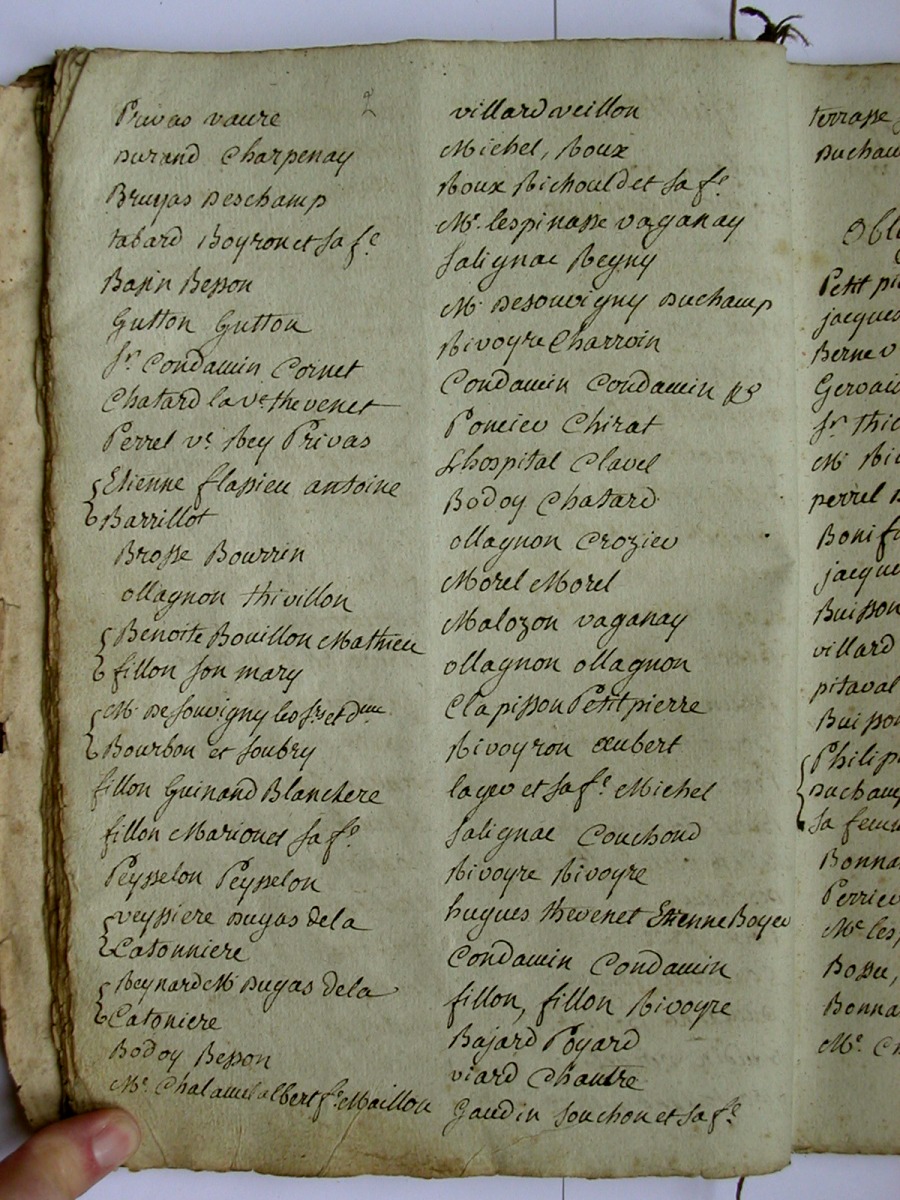 2
Privas vaure
Durand Charpenay
Bruyas Deschamp
tabard Boyron et sa fe
Basin Besson
Gutton Gutton
Sr. Condamin Cornet
Chatard la ve thevenet
Perrel ve Rey Privas
Etienne flassieu antoine
Barrillot
Brosse Bourrin
ollagnon thivillon
Benoite Bouillon Mathieu
fillon son mary
Mr De souvigny les Srs et dme
Bourbon et soubry
fillon Guinand Blanchere
fillon Marion et sa fe
Peysselon Peysselon
veyssiere Dugas de la
Catonniere
Reynard Mr Dugas de la
Catoniere
Bodoy Besson
Mr. Chalamel albert fe Maillon
villard veillon
Michel, Roux
Roux Richould et sa fe
Mr. lespinasse vaganay
Salignac Regny
Mr Desouvigny Duchamp
Rivoyre Charroin
Condamin Condamin
Poncieu Chirat
Lhospital Clavel
Bodoy Chatard
ollagnon Crozieu
Morel Morel
Malozon vaganay
ollagnon ollagnon
Clapisson Petitpierre
Rivoyron aubert
layeo et sa fe Michel
Salignac Couchoud
Rivoyre Rivoyre
hugues thevenet Etienne Boyeu
Condamin Condamin
fillon, fillon Rivoyre
Bajard Poyard
viard Chautre
Gaudin Souchon et sa fe
terrasse
Duchau
Obl
Petit pi
jacques
Berne v
Gervais
Sr thi
Mr Ri
perrel
Bonif
jacque
Buisson
villard
pitaval
Buisson
Philip
Duchamp
sa femm
Bonna
Perrieu
Mr les
Bossu,
Bonna
Mr. Ch